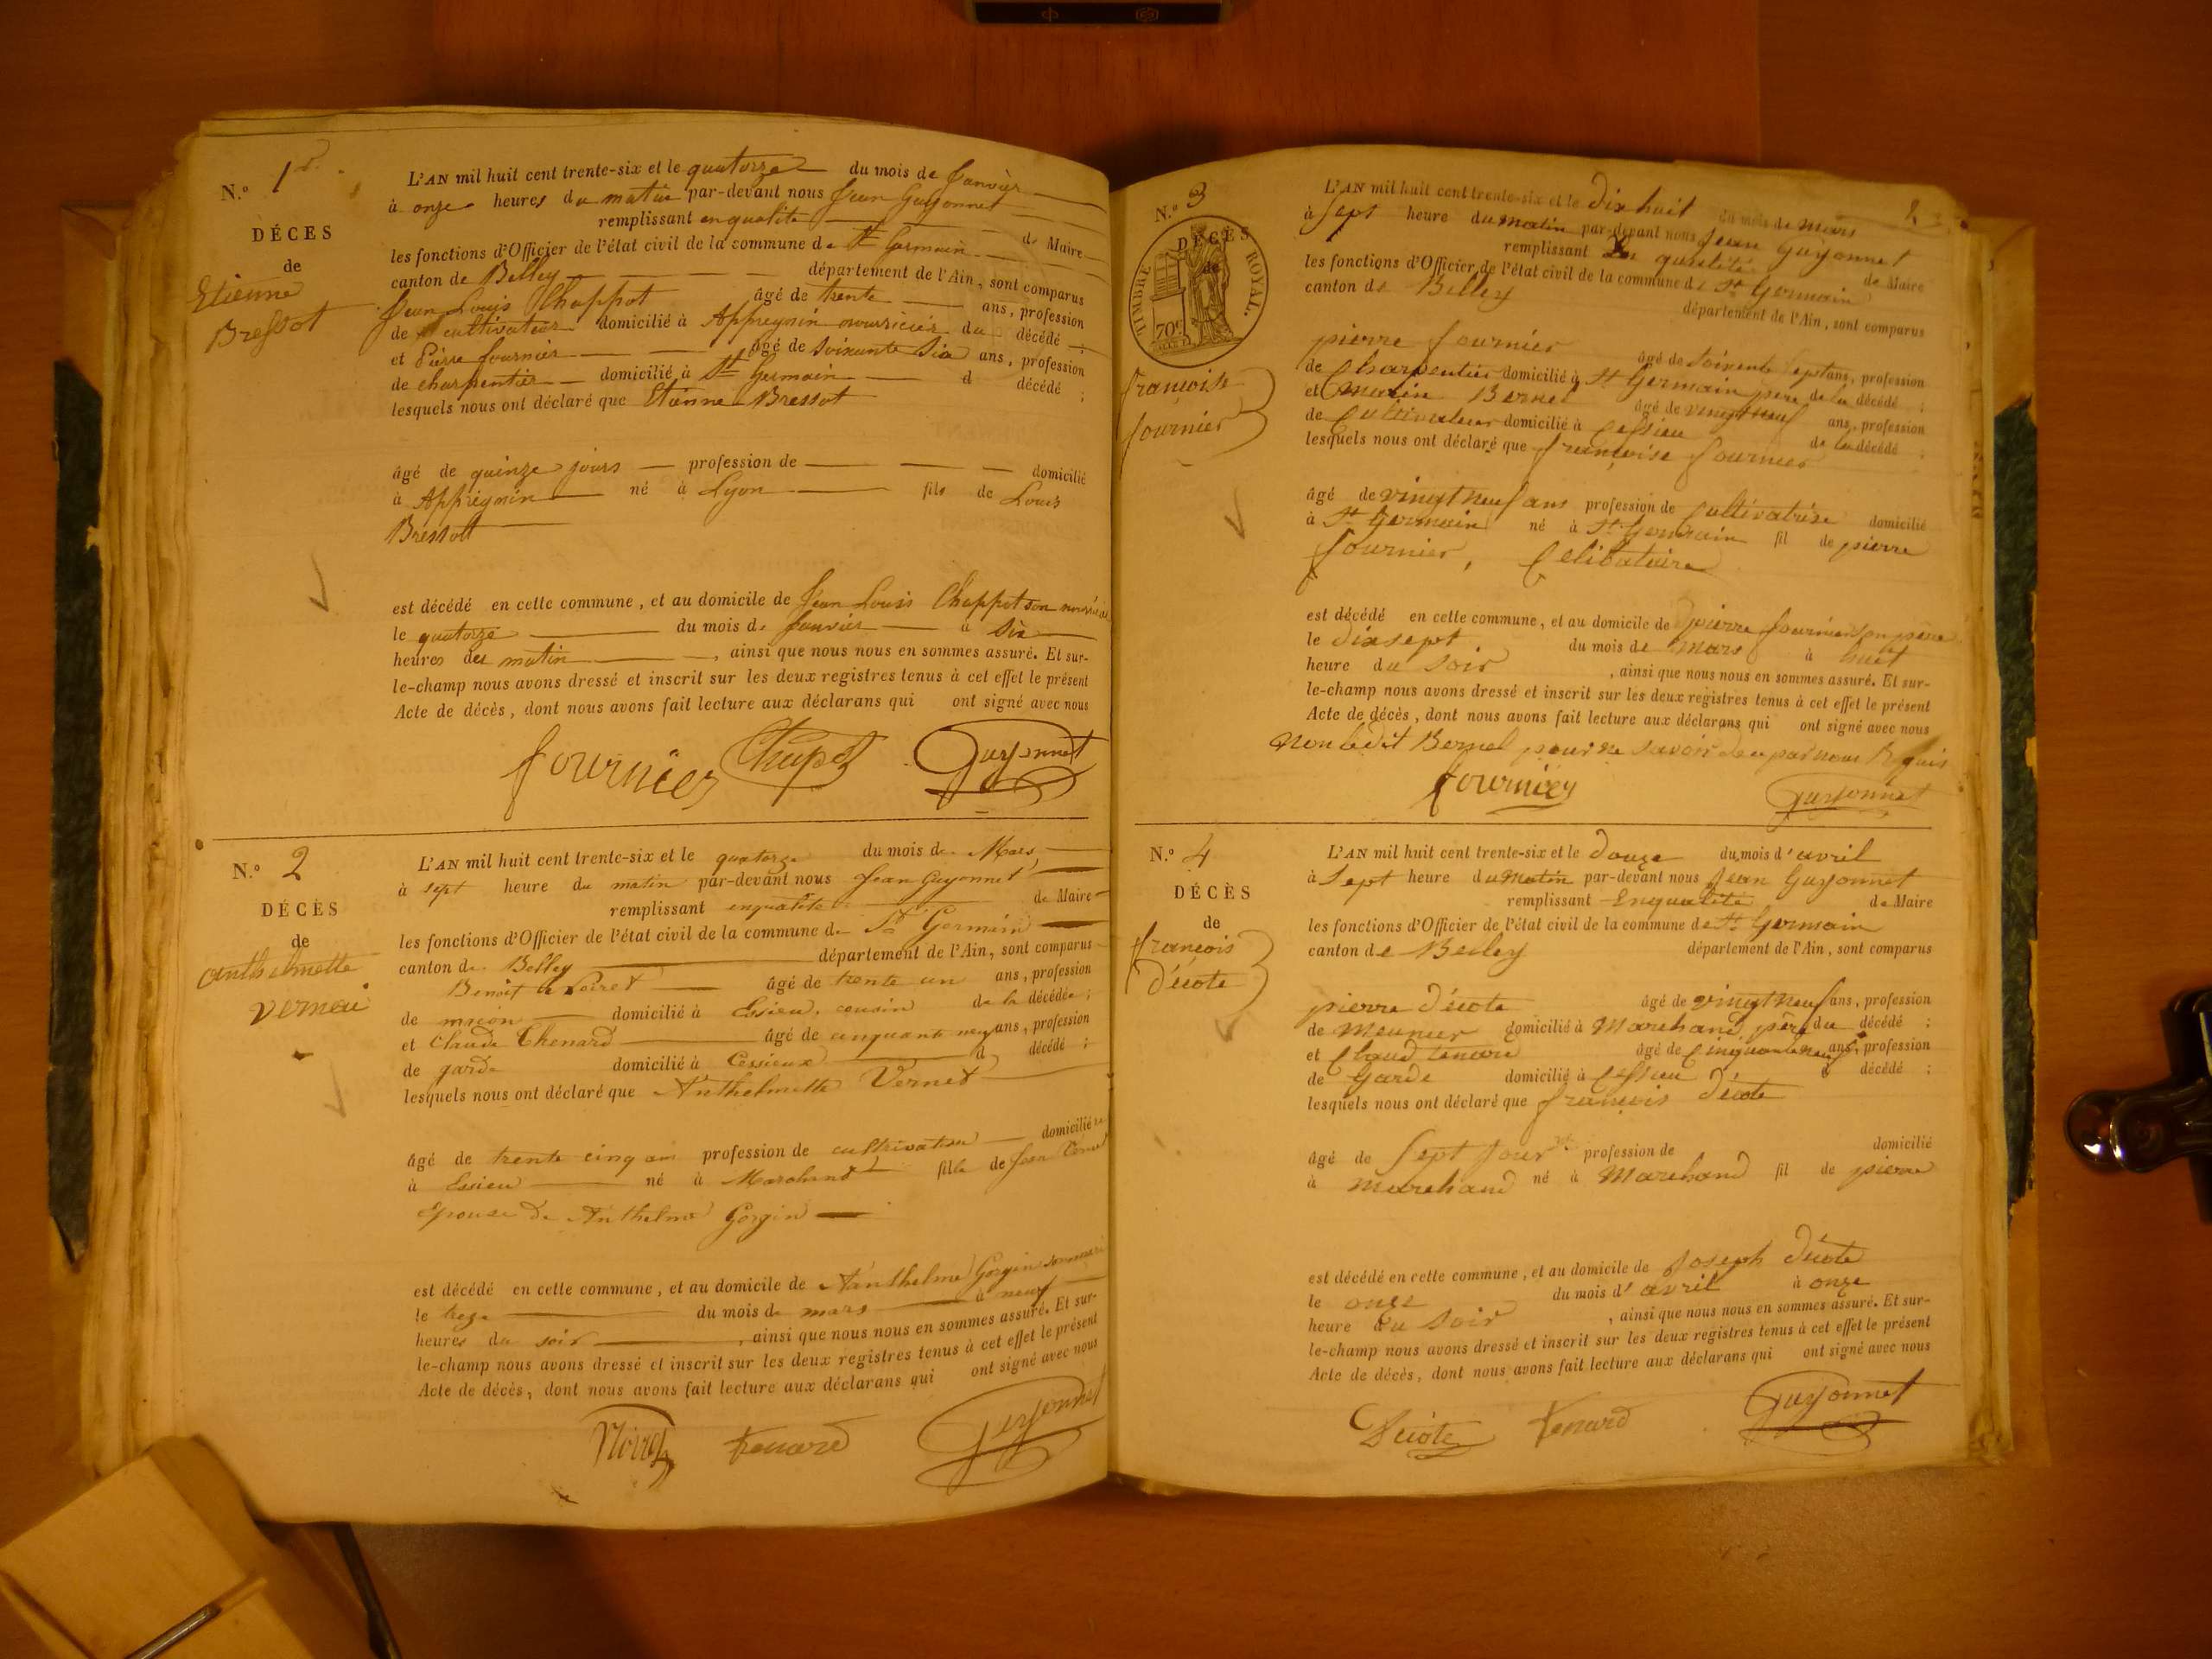 N.° 1
DÉCES
de
Etienne
Bressot
L'AN mil huit cent trente-six et le quatorze du mois de Janvier
à onze heures du matin par-devant nous Jean Guyonnet
remplissant en qualité de Maire
les fonctions d'Officier de l'état civil de la commune de St Germain
canton de Belley département de l'Ain, sont comparus
Jean Louis Chappot âgé de trente ans, profession
de cultivateur domicilié à Appregnin nourricier du décédé ;
et Pierre fournier âgé de soixante six ans, profession
de charpentier domicilié à St Germain d décédé ;
lesquels nous ont déclaré que Etienne Bressot
âgé de quinze jours profession de domicilié
à Appregnin né à Lyon fils de Louis
Bressott
est décédé en cette commune, et au domicile de Jean Louis Chappot son
le quatorze du mois de Janvier à six
heures du matin , ainsi que nous nous en sommes assuré. Et sur-
le-champ nous avons dressé et inscrit sur les deux registres tenus à cet effet le présent
Acte de décès, dont nous avons fait lecture aux déclarans qui ont signé avec nous
fournier Chapot Guyonnet
N.° 2
DÉCÈS
de
anthelmette
L'AN mil huit cent trente-six et le quatorze du mois de Mars
à sept heure du matin par-devant nous Jean Guyonnet
remplissant en qualité de Maire
les fonctions d'Officier de l'état civil de la commune de St Germain
canton de Belley département de l'Ain, sont comparus
Benoit âgé de trente un ans, profession
de maçon domicilié à Essieu, cousin de la décédée ;
et Claude Chenard âgé de cinquante neuf ans, profession
de garde domicilié à Cessieux d décédé ;
lesquels nous ont déclaré que Anthelmette Vernet
âgé de trente cinq ans profession de cultivatrice domiciliée
à Essieu né à Marchand fille de Jean
épouse de Anthelme Gorgin
est décédé en cette commune, et au domicile de Anthelme Gorgin son mari
le treze du mois de mars à neuf
heures du soir , ainsi que nous nous en sommes assuré. Et sur-
le-champ nous avons dressé et inscrit sur les deux registres tenus à cet effet le présent
Acte de décès, dont nous avons fait lecture aux déclarans qui ont signé avec nous
tenard Guyonnet
N.° 3
DÉCÈS
de
TIMBRE ROYAL.
70c
françoise
fournier
L'AN mil huit cent trente-six et le dix huit du mois de mars
à sept heure du matin par-devant nous Jean Guyonnet
remplissant En qualité de Maire
les fonctions d'Officier de l'état civil de la commune de St Germain
canton de Belley département de l'Ain, sont comparus
pierre fournier âgé de soixante sept ans, profession
de Charpentier domicilié à St Germain père de la décédé ;
et Bernel âgé de vingt neuf ans, profession
de Cultivateur domicilié à Cessieu de la décédé ;
lesquels nous ont déclaré que françoise fournier
âgé de vingt neuf ans profession de Cultivatrise domicilié
à St Germain né à St Germain fil de pierre
fournier, Celibataire
est décédé en cette commune, et au domicile de pierre fournier son père
le dix sept du mois de mars à huit
heure du soir , ainsi que nous nous en sommes assuré. Et sur-
le-champ nous avons dressé et inscrit sur les deux registres tenus à cet effet le présent
Acte de décès, dont nous avons fait lecture aux déclarans qui ont signé avec nous
non ledit Bernel pour ne savoir de ce par nous Requis
fournier Guyonnet
N.° 4
DÉCÈS
de
françois
Décote
L'AN mil huit cent trente-six et le douze du mois d'avril
à Sept heure du matin par-devant nous Jean Guyonnet
remplissant En qualité de Maire
les fonctions d'Officier de l'état civil de la commune de St Germain
canton de Belley département de l'Ain, sont comparus
pierre Décote âgé de vingt neuf ans, profession
de Meunier domicilié à Marchand père du décédé ;
et Claud tenard âgé de Cinquante neuf ans, profession
de Garde domicilié à Cessieu d décédé ;
lesquels nous ont déclaré que françois Décote
âgé de Sept Jour profession de domicilié
à marchand né à Marchand fil de pierre
est décédé en cette commune, et au domicile de Joseph Décote
le onze du mois d'avril à onze
heure du soir , ainsi que nous nous en sommes assuré. Et sur-
le-champ nous avons dressé et inscrit sur les deux registres tenus à cet effet le présent
Acte de décès, dont nous avons fait lecture aux déclarans qui ont signé avec nous
Décote tenard Guyonnet